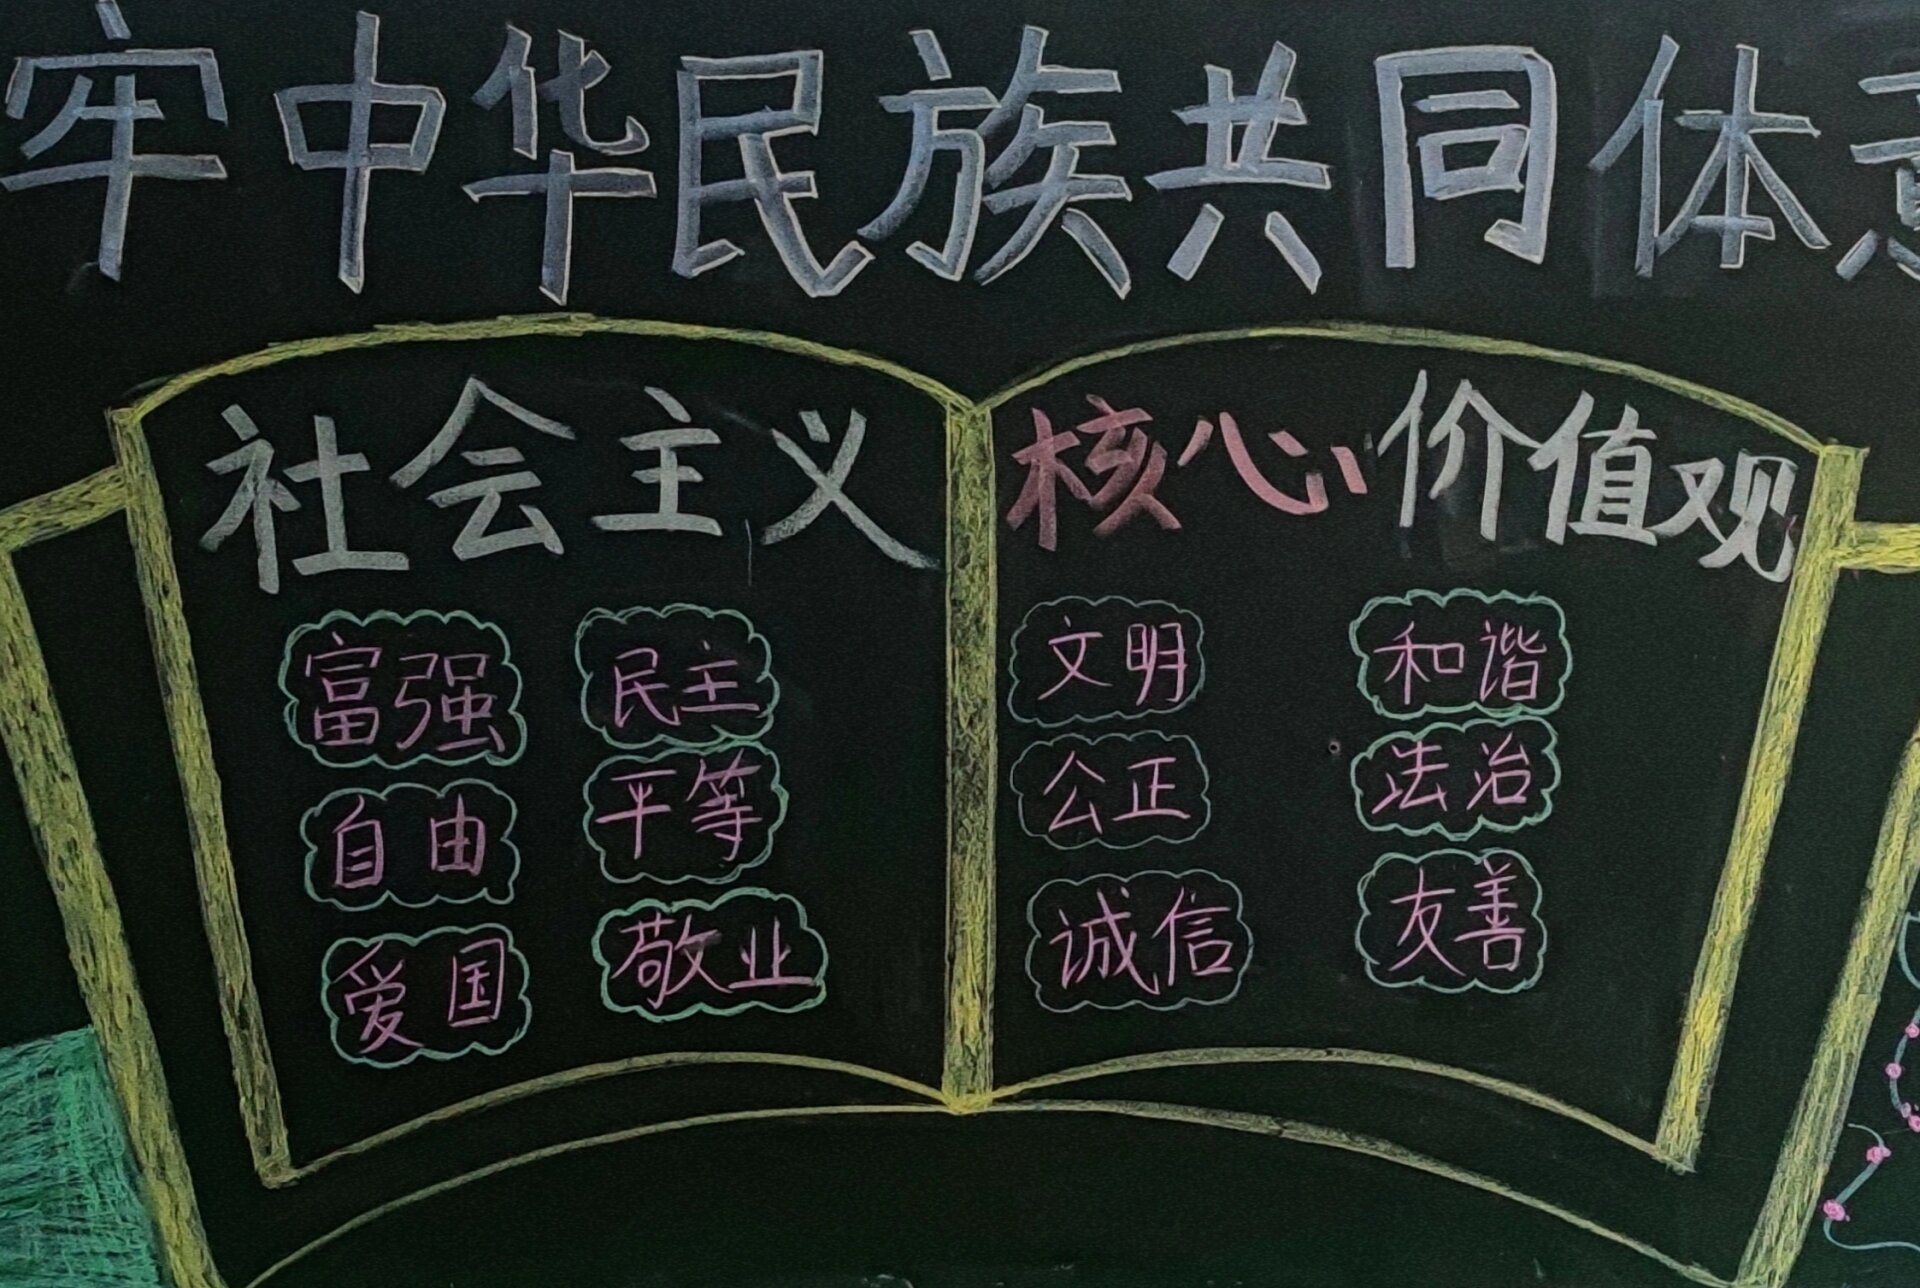 牢中华民族共同体意
社会主义 核心价值观
富强 民主 文明 和谐
自由 平等 公正 法治
爱国 敬业 诚信 友善